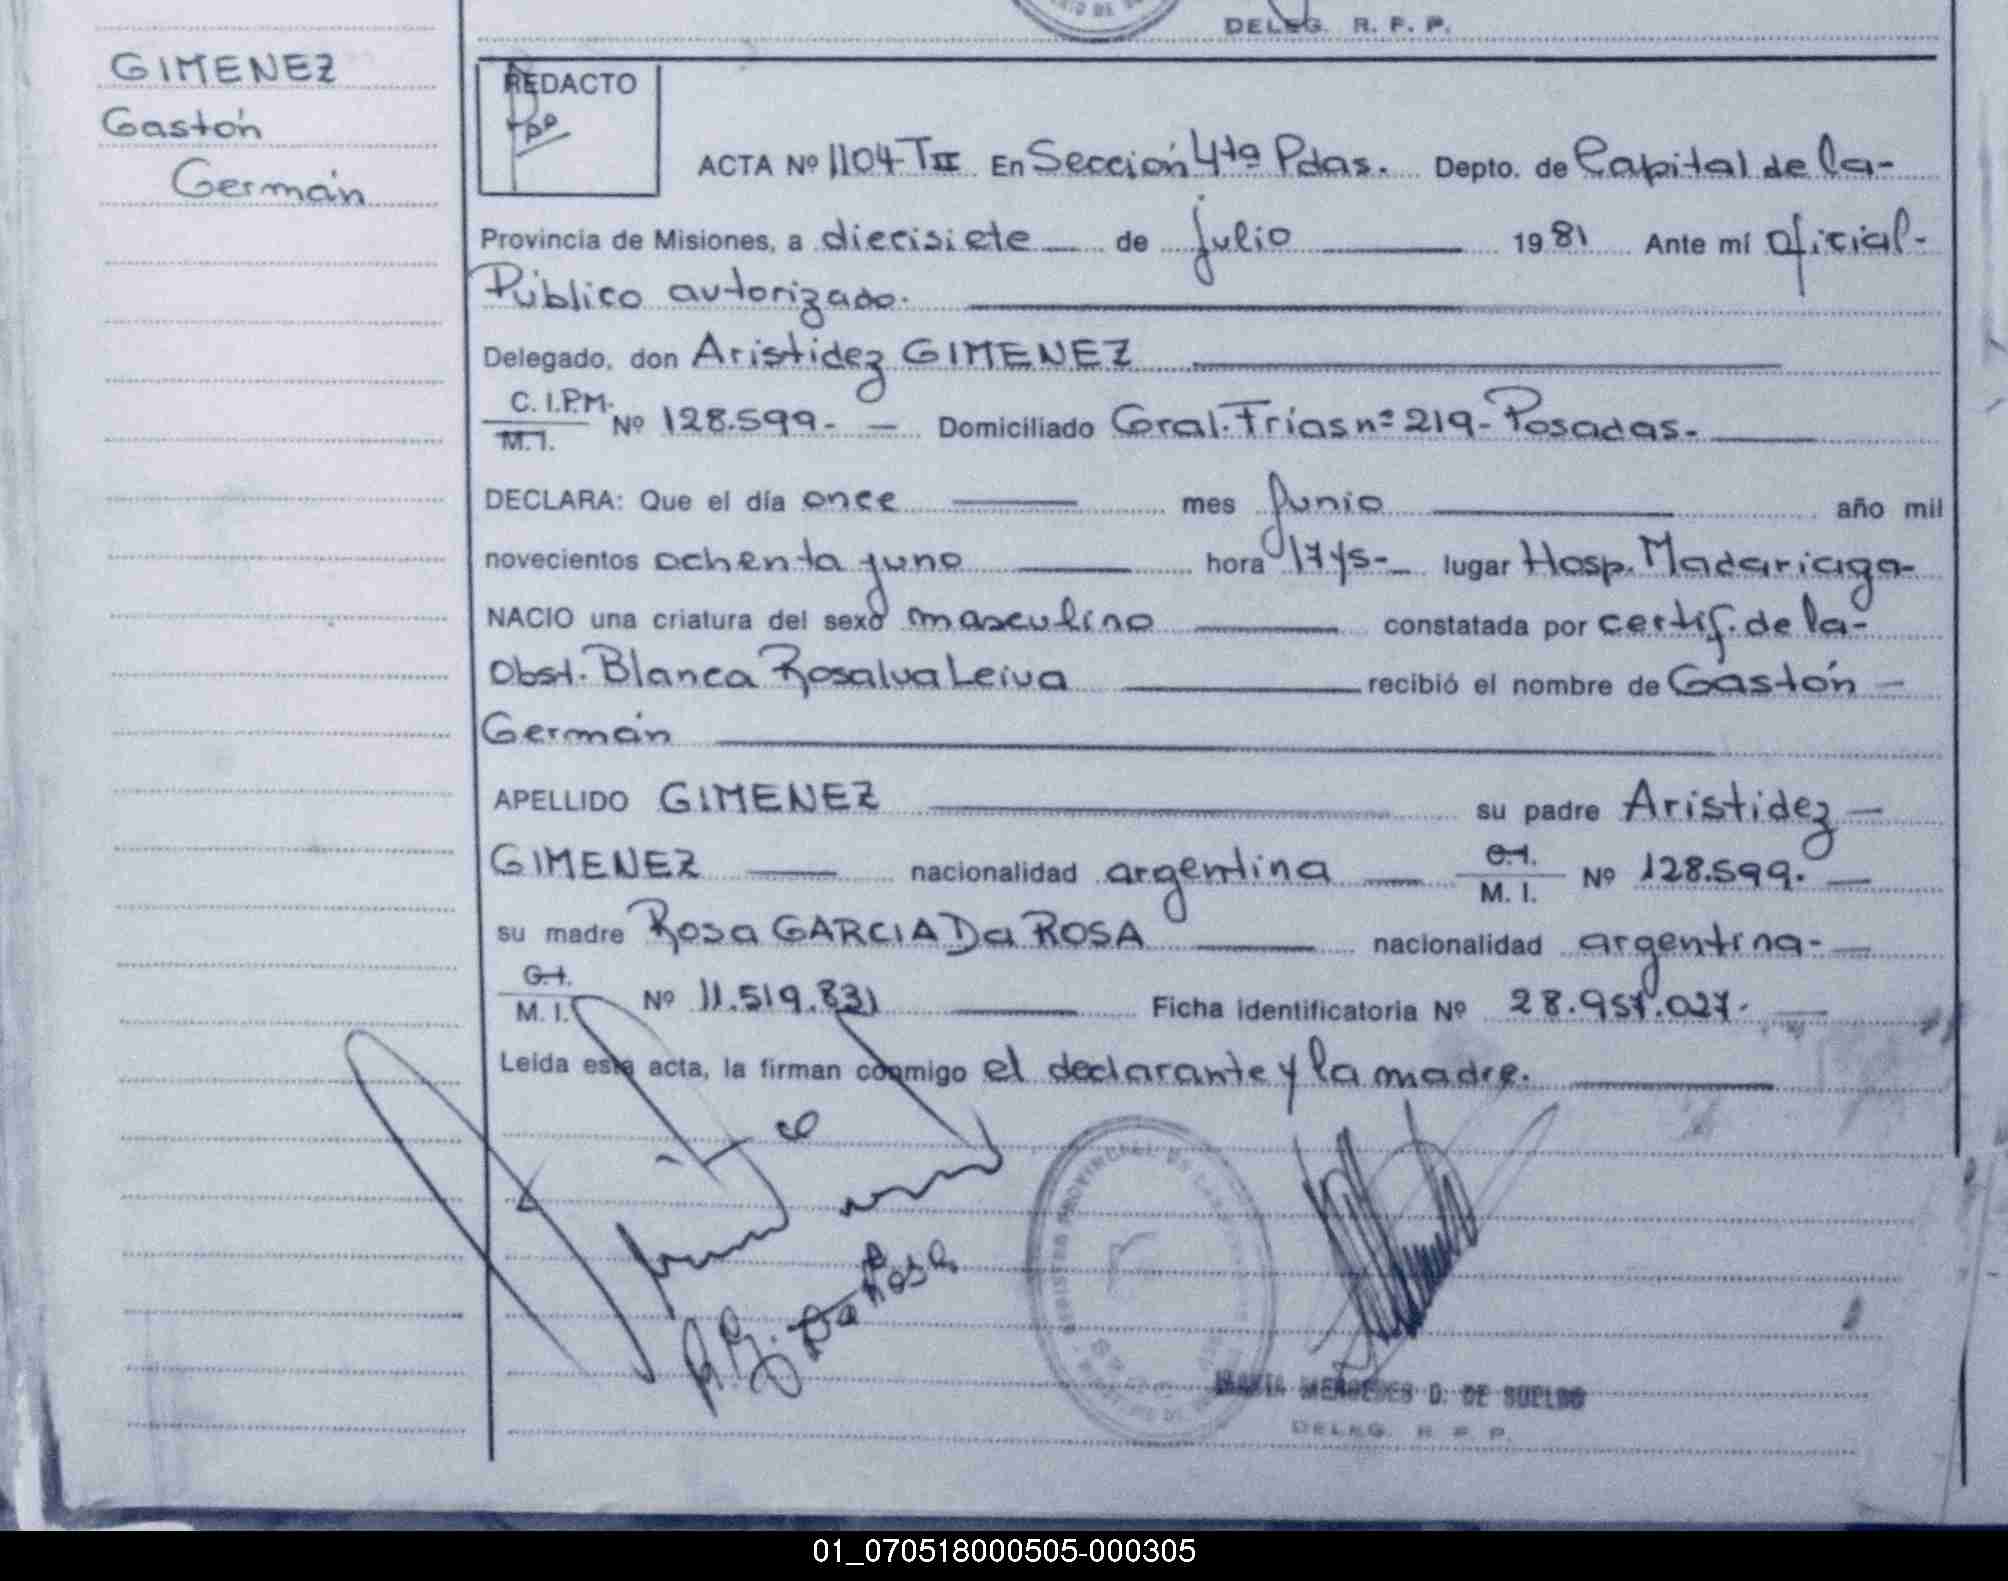 DELEG. R. P. P.
GIMENEZ
Gastón
Germán
REDACTO
ACTA Nº 1104-TII En Sección 4ta Pdas. Depto. de Capital de la-
Provincia de Misiones, a diecisiete — de julio — 1981 Ante mí oficial-
Público autorizado. —
Delegado, don Aristidez GIMENEZ —
C. I.P.M.
M. I. Nº 128.599.- — Domiciliado Gral. Frías nº 219- Posadas.- —
DECLARA: Que el día once — mes Junio — año mil
novecientos ochenta y uno — hora 17 y 5- — lugar Hosp. Madariaga-
NACIO una criatura del sexo masculino — constatada por certif. de la-
Obst. Blanca Rosalva Leiva — recibió el nombre de Gastón —
Germán —
APELLIDO GIMENEZ — su padre Aristidez —
GIMENEZ — nacionalidad argentina — C. I. M. I. Nº 128.599. —
su madre Rosa GARCIA Da ROSA — nacionalidad argentina- —
C. I. M. I. Nº 11.519.831 — Ficha identificatoria Nº 28.957.027. —
Leída esta acta, la firman conmigo el declarante y la madre. —
Da Rosa
MARIA MERCEDES D. DE SUELDO
DELEG. R. P. P.
01_070518000505-000305